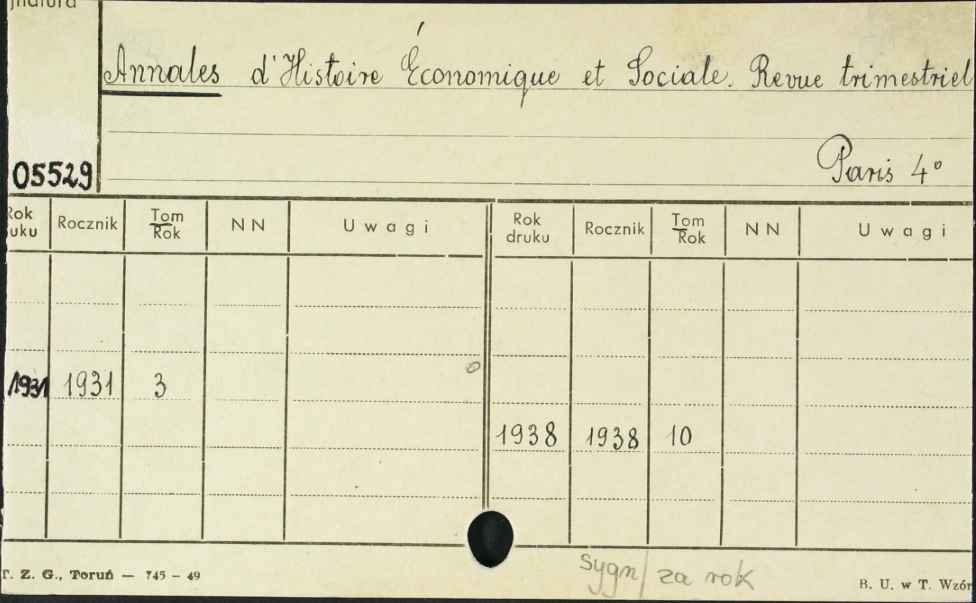 gnatura
Annales d'Histoire Économique et Sociale. Revue trimestriel
Paris 4°
05529
Rok
uku
Rocznik
Tom
Rok
N N
Uwagi
Rok
druku
Rocznik
Tom
Rok
N N
Uwagi
1931 1931 3
1938 1938 10
T. Z. G., Toruń — 745 – 49
sygn/ za rok
B. U. w T. Wzór